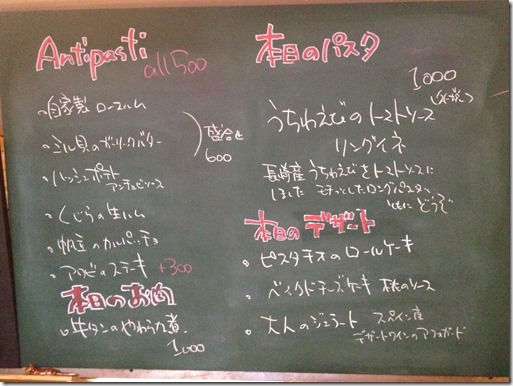 Antipasti
all 500
自家製 ロースハム
ミル貝のガーリックバター
ハッシュポテト
アンチョビソース
くじらの生ハム
帆立のカルパッチョ
アワビのステーキ +300
盛合せ
600
本日のお肉
牛タンのやわらか煮
1,000
本日のパスタ
1,000
うちわえびのトマトソース
リングイネ
長崎産 うちわえびをトマトソースに
しました モチッとしたロングパスタ
と共に どうぞ
本日のデザート
ピスタチオのロールケーキ
ベイクドチーズケーキ 桃のソース
大人のジェラート スペイン産
デザートワインのアフォガード